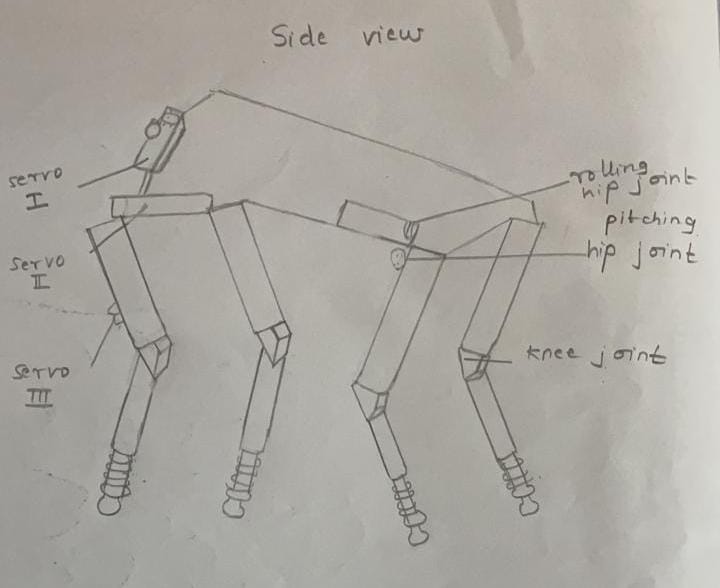 Side view
servo
I
servo
II
servo
III
rolling
hip joint
pitching
hip joint
knee joint